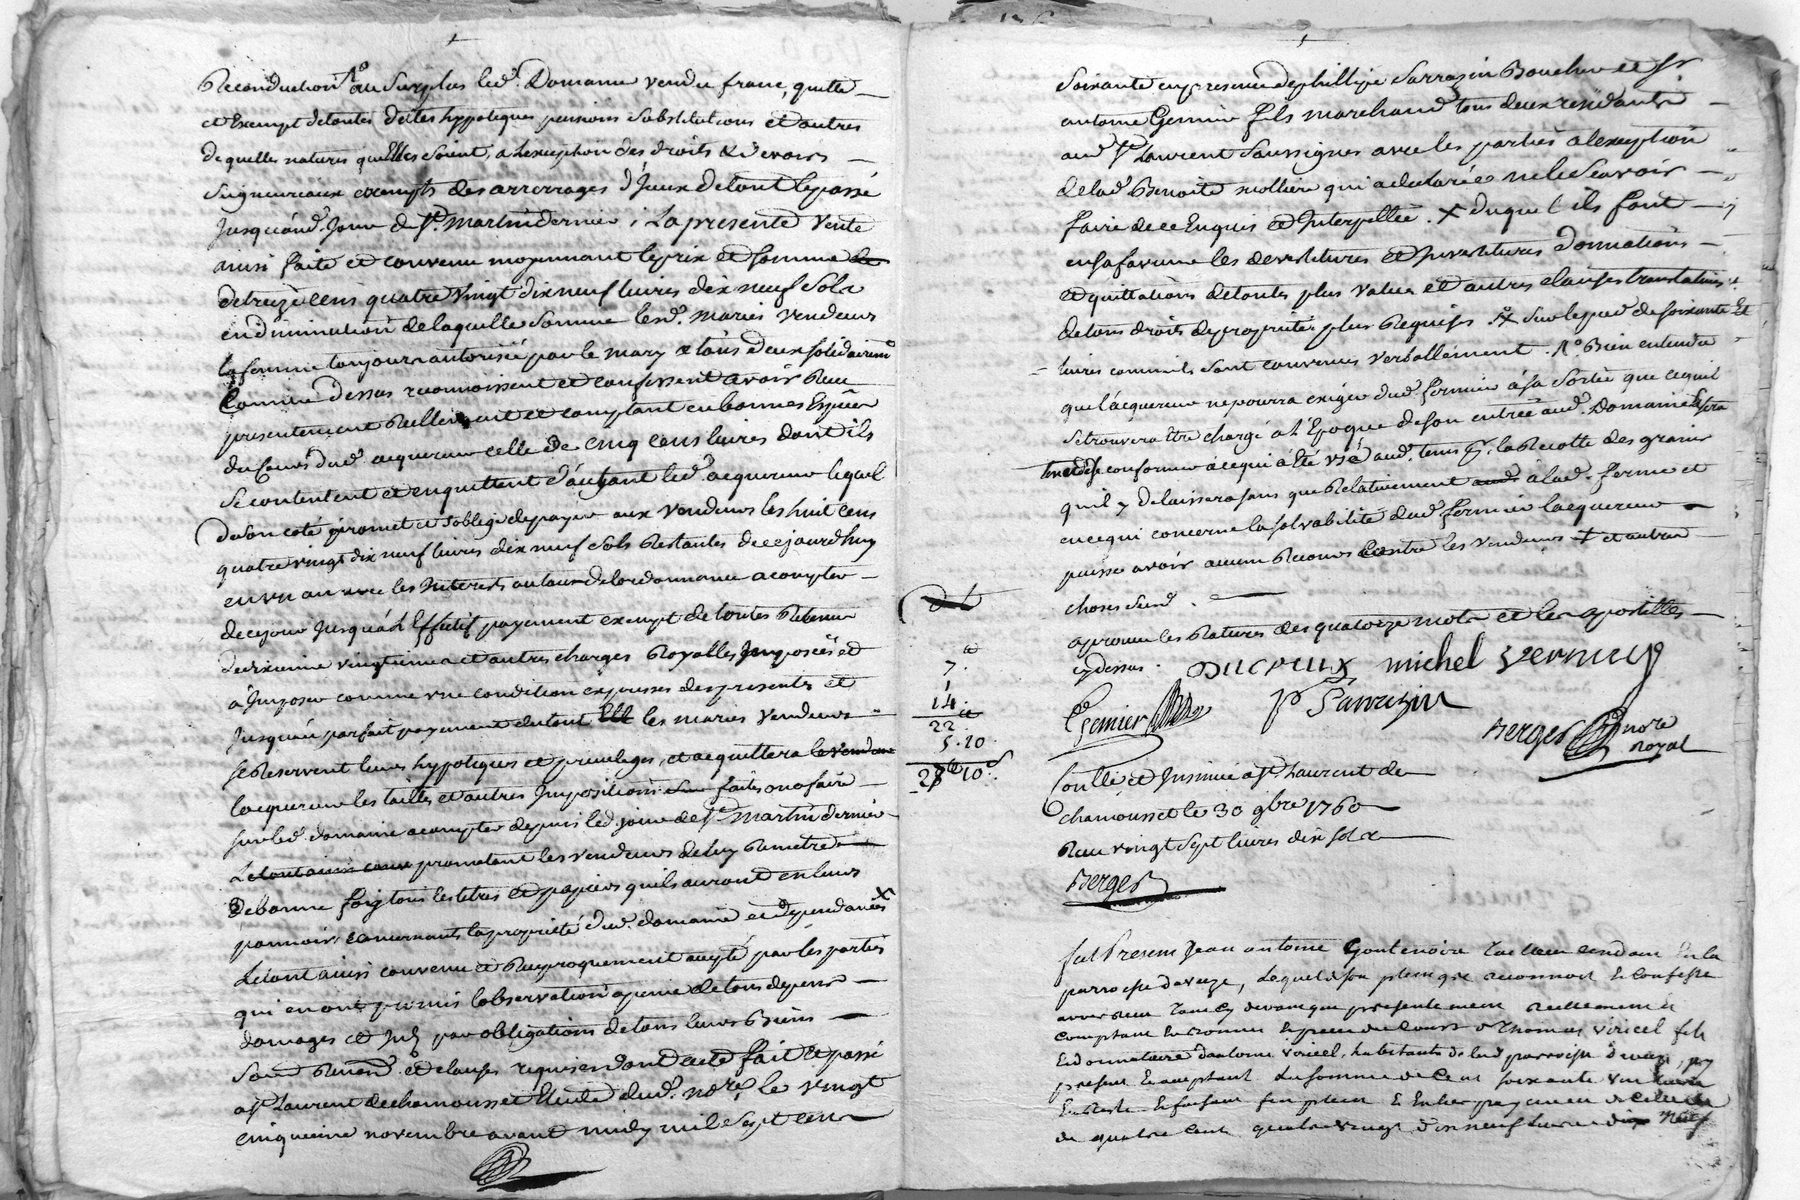 Reconduction. No au Surplus led. Domaine vendu franc, quitte
et Exempt de toutes dettes hypoteques pensions substitutions et autres
de quelles natures quelles soient, a lexception des droits & devoirs
seigneuriaux exempts des arrerages d'iceux de tout le passé
Jusquaud. Jour de St. Martin dernier; La presente vente
ainsi faite et convenu moyennant le prix et somme de
de treize cens quatre vingt dix neuf livres dix neuf sols
en diminution de laquelle somme lesd. mariés vendeurs
la femme toujours autorisée par le mary et tous deux solidairemt
Comme dessus reconnoissent et confessent avoir Reçu
presentement Reellement et comptant en bonnes Espèces
du Cours dud. acquereur celle de cinq cens livres dont ils
se contentent et en quittent d'autant led. acquereur lequel
de son coté promet et s'oblige de payer aux vendeurs les huit cens
quatre vingt dix neuf livres dix neuf sols Restantes de cejourdhuy
en un an avec les Interets au taux de lordonnance a compter
de ce jour Jusquà l'Effectif payement exempt de toutes Retenue
dixieme vingtieme et autres charges Royalles Imposées et
à Imposer comme une condition expresse des presentes et
Jusquau parfait payement du tout les mariés vendeurs
se Reservent leurs hypoteques et privileges, et acquittera le vend
lacquereur les tailles et autres Impositions faites ou a faire
sur led. domaine a compter depuis led. jour de St. Martin dernier
Letout ainsi conv promettant les vendeurs de luy Remettre
de bonne foy tous les titres et papiers quils auront en leurs
pouvoir concernants la propriété dud. domaine et dependances X
Letout ainsi convenu et Reciproquement accepté par les parties
qui en ont promis l'observation a peine de tous depens
domages et Int. par obligations de tous leurs Biens
Soumd. Renond. et clauses requises dont acte fait et passé
a St. Laurent de chamousset Etude dud. nore. le vingt
cinquieme novembre avant midy mil sept cens
soixante en presence de phillipe Sarrazin Boucher et Sr
antoine Gemier fils marchand tous deux residants
aud. St. Laurent Soussignés avec les parties a lexception
de lad. Benoite mollière qui a declarée ne le scavoir
faire de ce Enquis et Interpellée. X duquel ils font
en sa faveur les devestitures et Investitures donnations
et quittations de toutes plus value et autres clauses translatives
de tous droits de propriété plus Requises. X sur le pied de soixante Et
livres comme ils sont convenus verballement. No. Bien entendu
que lacquereur ne pourra exiger dud. fermier à sa sortie que ce quil
se trouvera être chargé a l'Epoque de son entrée aud. Domaine
conformer à ce qui a été usé aud. tems pr. la Recolte des grains
quil y delaissera sans que Relativement aud. a lad. ferme et
en ce qui concerne la solvabilité dud. fermier lacquereur
puisse avoir aucun Recours contre les vendeurs + et autres
choses sud.
aprouve les Ratures des quatorze mots et les apostilles
cy dessus. Ducreux michel Vernay
Gemier P Sarrazin
Berger nore
Royal
7.
1
14.
22
5.10
28 10 s
Collé et Insinué a St. Laurent de
chamousset le 30 9bre 1760
Reçu vingt sept livres dix sols
Berger
fut Present Jean antoine Goutenoire residant En la
parroisse daveize, Lequel de son plein gré reconnoit Et Confesse
avoir Reçu devant que presentement reellement et
comptant En bonne Espece du cours de Thomas Viricel fils
Et donnataire dantoine Viricel, habitants de lad. parroisse daveize, icy
present Et acceptant La somme de Cent soixante
En Reste Et faisant fin plein Et Entier payement de Celle de
de quatre Cent quatre vingt dix neuf livres dix neuf